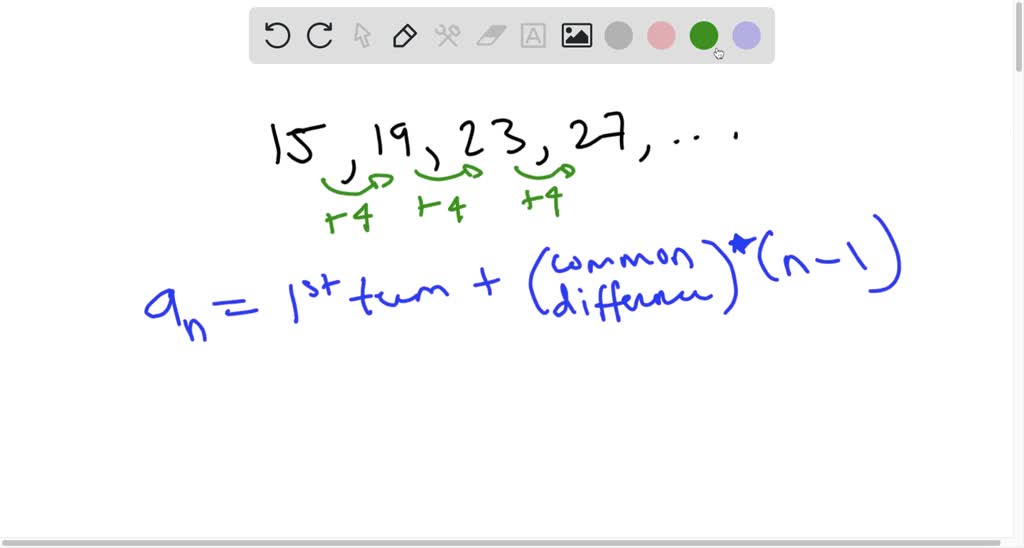 15, 19, 23, 27, ...
+4 +4 +4
aₙ = 1st term + (common difference)*(n-1)